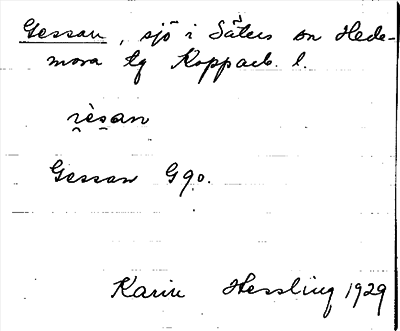 Gessan, sjö i Säters sn Hede-
mora tg Kopparb. l.
Gessan G90.
Karin Hessling 1929